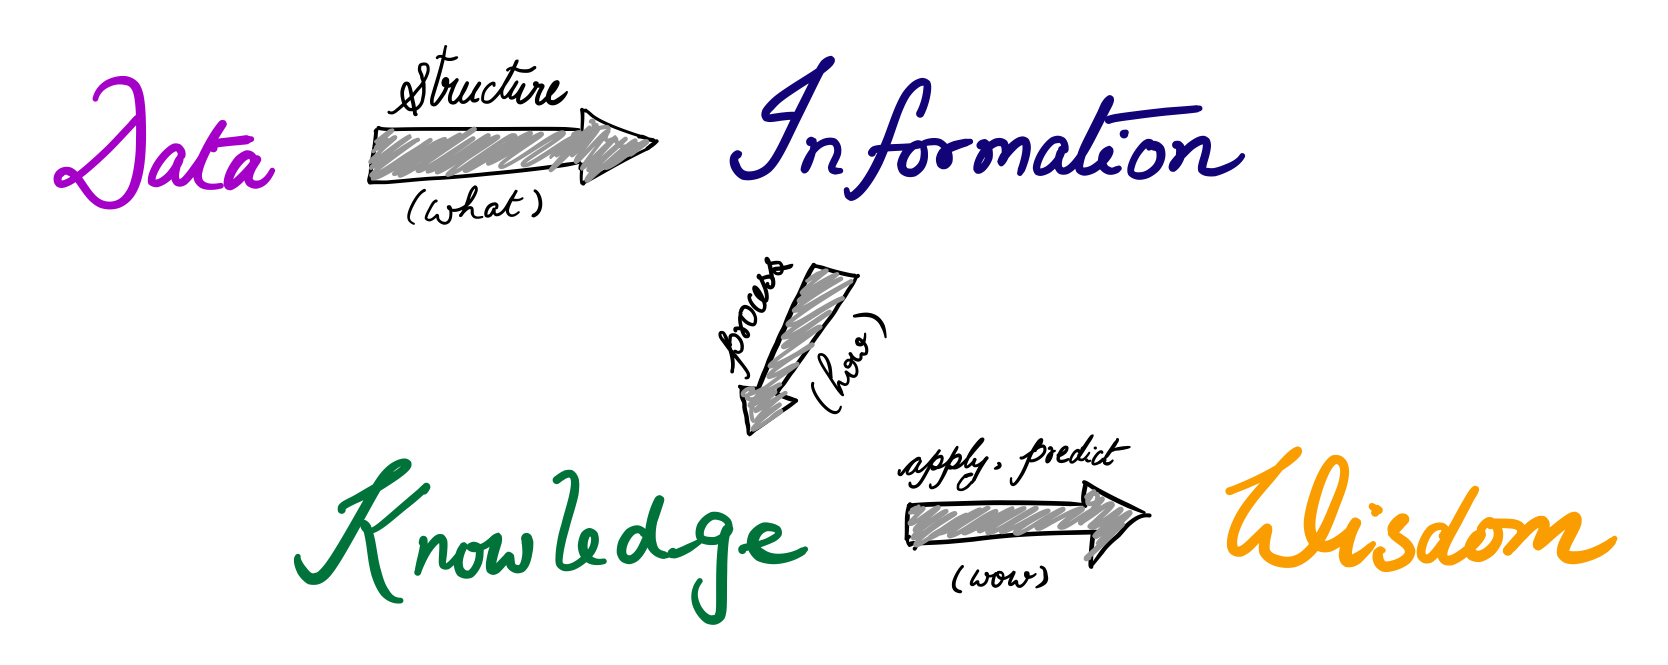 Data
Structure
(what)
Information
process
(how)
Knowledge
apply, predict
(wow)
Wisdom